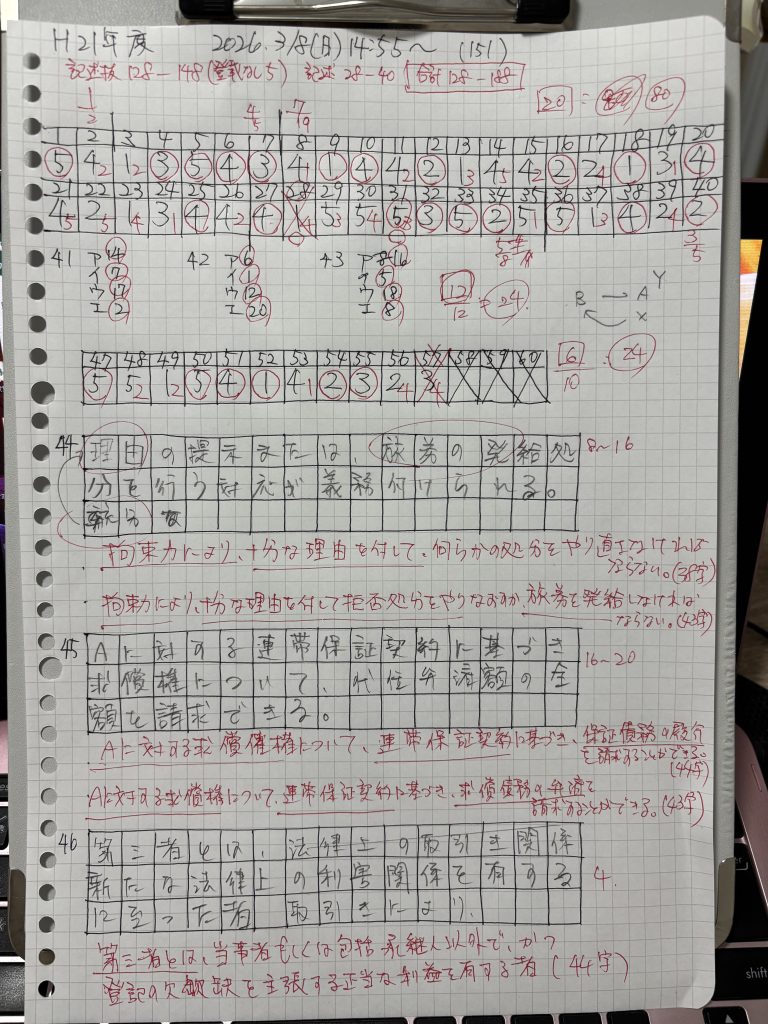 H21年度 2026.3/8(日)14:55〜 (151)
記述抜 128−148( なし5) 記述 28−40 合計128−188
20 = 80
1/2 4/5 7/19
1 2 3 4 5 6 7 8 9 10 11 12 13 14 15 16 17 18 19 20
⑤ 42 12 ③ ⑤ ④ ③ 41 ① ④ 42 ② 13 45 42 ② 24 ① 31 ④
21 22 23 24 25 26 27 28 29 30 31 32 33 34 35 36 37 38 39 40
45 25 14 31 ④ 42 ④ 14 53 54 53 ③ ⑤ ② 51 ⑤ 13 ④ 24 ②
3/5
41 ア14 42 ア6 43 ア16
イ7 イ1 イ5
ウ17 ウ12 ウ18
エ2 エ20 エ8
12/12 = 24
Y
B → A
X
47 48 49 50 51 52 53 54 55 56 57 58 59 60
⑤ 52 12 ⑤ ④ ① 41 ② ③ 24 34
6/10 24
44 理由の提示または、旅券の発給処 8〜16
分を行う対応が義務付けられる。
新た分な
拘束力により、十分な理由を付して、何らかの処分をやり直さなければ
ならない。(38字)
拘束力により、十分な理由を付して拒否処分をやりなおすか、旅券を発給しなければ
ならない。(43字)
45 Aに対する連帯保証契約に基づき 16〜20
求償権について、代位弁済額の全
額を請求できる。
Aに対する求償権について、連帯保証契約に基づき、保証債務の履行
を請求することができる。
(44字)
Aに対する求償権について、連帯保証契約に基づき、求償債務の弁済を
請求することができる。(43字)
46 第三者とは、法律上の取引き関係
新たな法律上の利害関係を有する 4.
に至った者 取引きにより、
第三者とは、当事者もしくは包括承継人以外で、かつ
登記の欠缺を主張する正当な利益を有する者 (44字)
shift